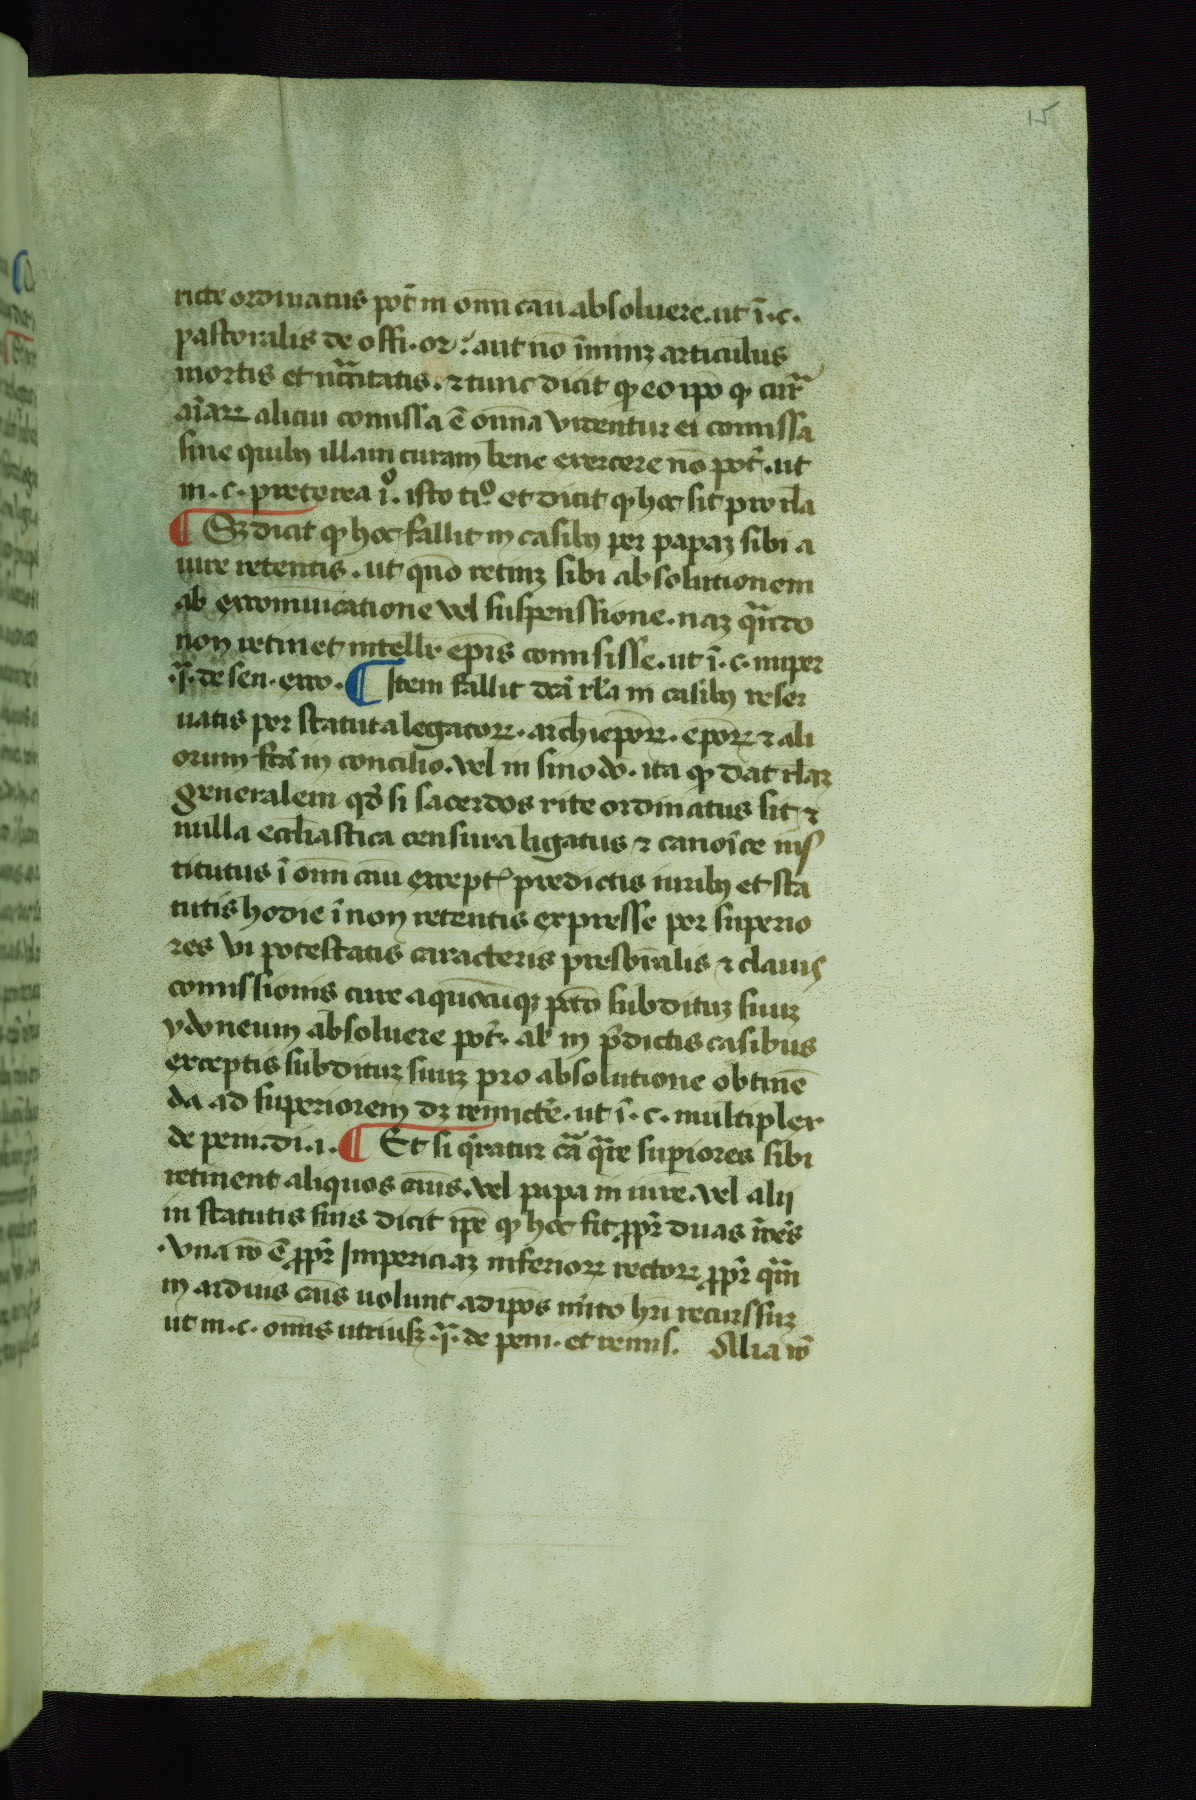 15
ricte ordinatus pot̃ in om̄i cau absoluere. ut ĩ. c.
pastoralis de offi. or. aut nō ĩminꝫ articulus
mortis et nccĩtatis. ⁊ tunc dicit ꝙ eo ipō ꝙ cur̃
aĩaꝝ alicui comissa ē om̄ia videntur ei comissa
sine quibꝫ illam curam bene exercere nō pot̃. ut
in. c. preterea i.º isto ti.º et dicit ꝙ hoc sit pro rl̃a
¶ Sꝫ dicit ꝙ hoc fallit in casibꝫ per papaꝫ sibi a
iure retentis. ut qn̄o retinꝫ sibi absolutionem
ab excomunicatione vel suspenssione. naꝫ qñdo
non retinet intellr̃ ep̄is comisisse. ut ĩ. c. nuper
.q̃. de sen. exco. ¶ Item fallit dcã rl̃a in casibꝫ reser
uatis per statuta legatoꝝ. archiep̄oꝝ. ep̄oꝝ ⁊ ali
orum fctã in concilio. vel in sinodo. ita ꝙ dat rl̃aꝫ
generalem qd̃ si sacerdos rite ordinatus sit ⁊
nulla eccl̃iastica censura ligatus ⁊ canoĩce ins
titutus ĩ om̄i cau except̃ predictis iuribꝫ et sta
tutis hodie ĩ non retentis expresse per superio
res vi potestatis caracteris presbĩalis ⁊ clauis
comissionis cure a quocūqꝫ pctō subdituꝫ suuꝫ
ydoneum absoluere pot̃. al̃ in p̄dictis casibus
exceptis subdituꝫ suuꝫ pro absolutione obtinē
da ad superiorem dꝫ remicte. ut ĩ. c. multiplex
de peni. di. 1. ¶ Et si q̃ratur cã q̃re supiores sibi
retinent aliquos casus. vel papa in iure. vel alij
in statutis suis dicit ip̄e ꝙ hoc sit ꝓpr̃ duas rões
.Vna rō ē ꝓpr̃ Imperitiaꝫ inferioꝝ rectoꝝ ꝓpr̃ qm̃
in arduis cās uolunt ad ipos m̃ito hr̃i recurssuꝫ
ut in. c. om̄is utriusꝫ .q̃. de peni. et remis. Alia rō